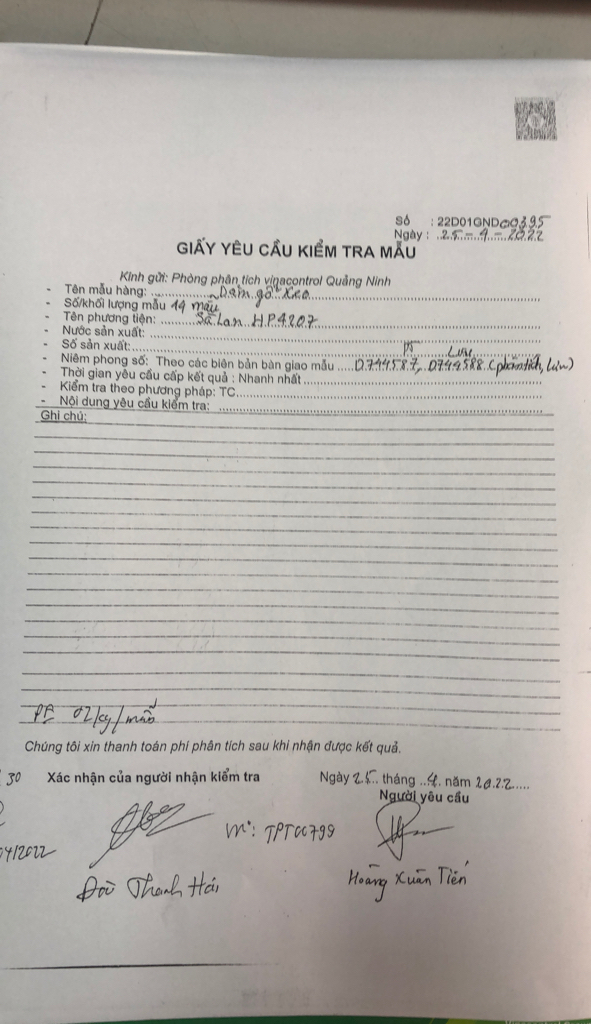 Số : 22D01GND00395
Ngày : 25-4-2022
GIẤY YÊU CẦU KIỂM TRA MẪU
Kính gửi: Phòng phân tích vinacontrol Quảng Ninh
- Tên mẫu hàng: Dăm gỗ keo
- Số/khối lượng mẫu 14 mẫu
- Tên phương tiện: Sà lan HP4207
- Nước sản xuất:
- Số sản xuất:
PT Lưu
- Niêm phong số: Theo các biên bản bàn giao mẫu 0744587, 0744588 (phân tích, lưu)
- Thời gian yêu cầu cấp kết quả : Nhanh nhất
- Kiểm tra theo phương pháp: TC
- Nội dung yêu cầu kiểm tra:
Ghi chú:
PE 02/kg/mẫu
Chúng tôi xin thanh toán phí phân tích sau khi nhận được kết quả.
30 Xác nhận của người nhận kiểm tra Ngày 25 tháng 4 năm 2022
Người yêu cầu
04/2022 TPT00799
Thanh Hải Hoàng Xuân Tiến